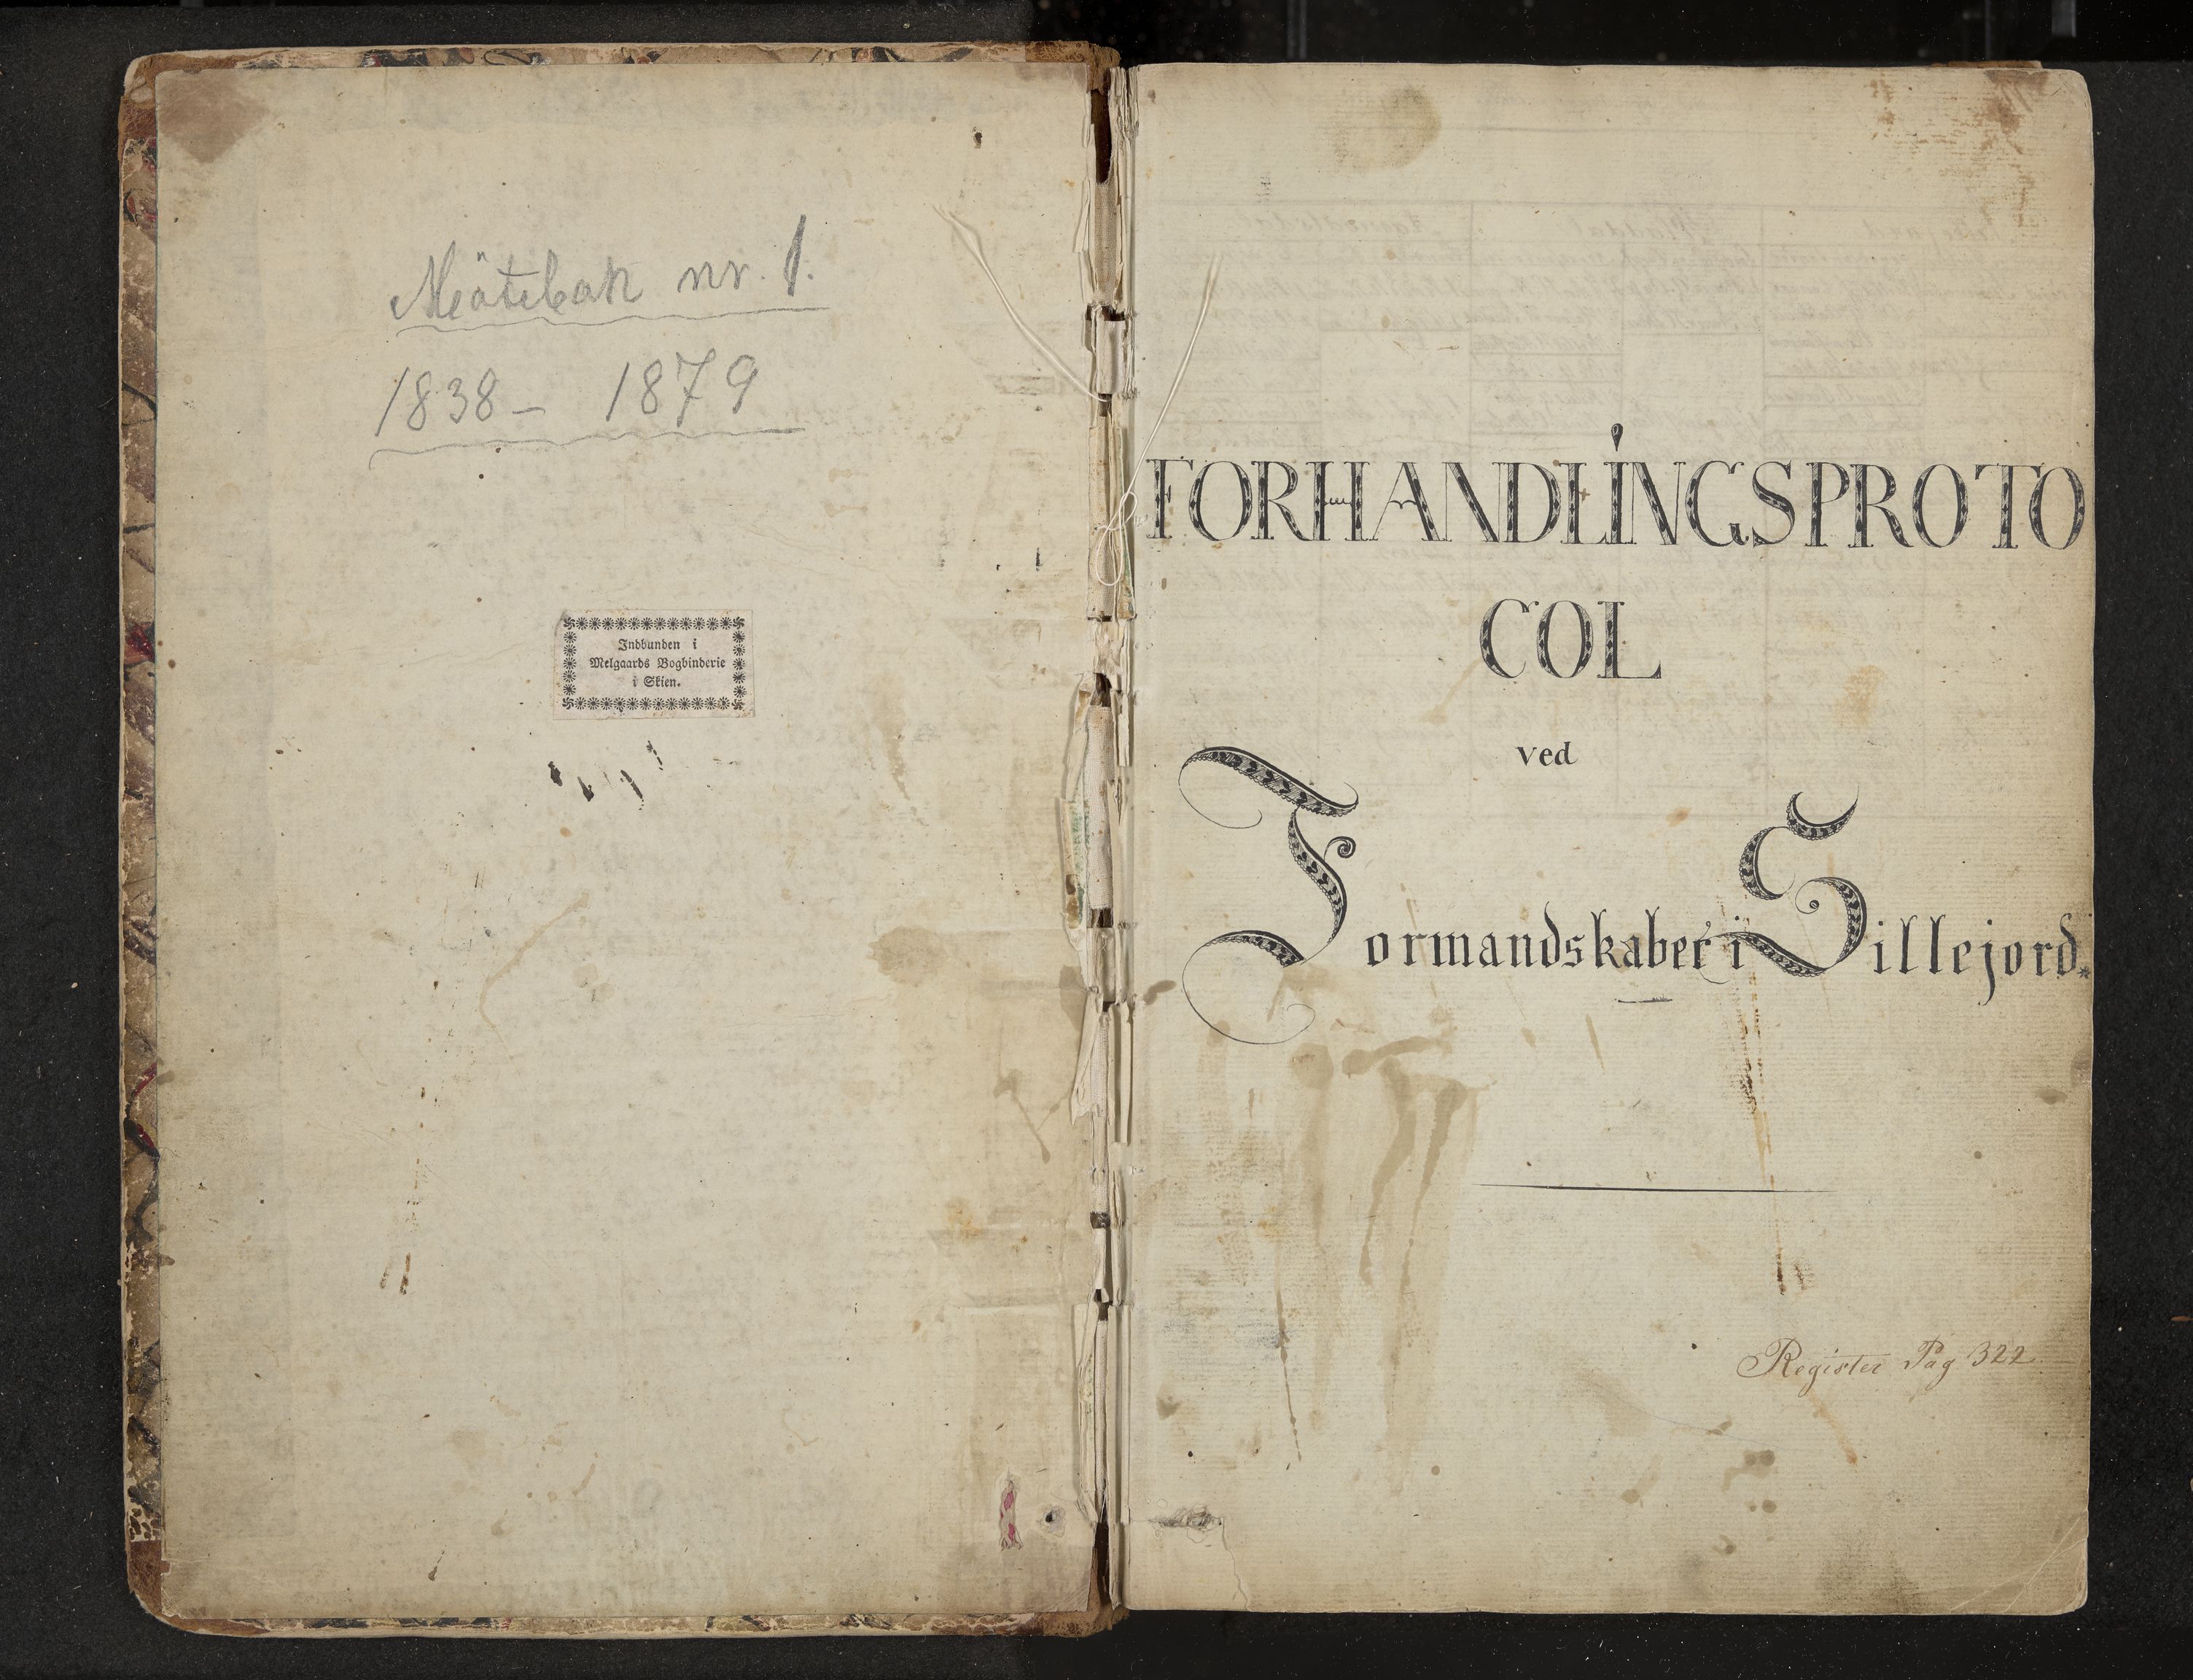 Møtebok nr. 1.
1838 - 1879
Indbunden i
Melgaards Bogbinderie
i Skien.
FORHANDLINGSPROTO
COL
ved
Formandskabet i Sillejord.
Register Pag 322